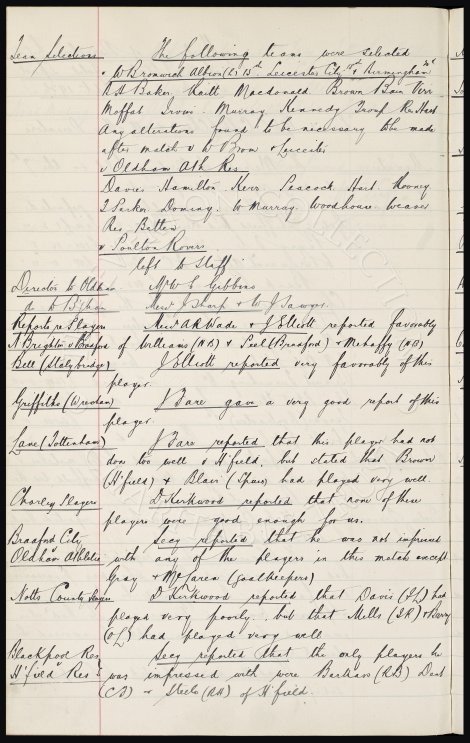 Team Selections The following teams were selected
v W Bromwich Albion (L) 13th Leicester City 18th & Birmingham 20th
R H Baker Raitt Macdonald Brown Bain Virr
Moffat Irvine Murray Kennedy Troup Res Hart
Any alterations found to be necessary to be made
after match v W Brom & Leicester
v Oldham Ath Res
Davies Hamilton Kerr Peacock Hart Rooney
Parker Dominy W Murray Woodhouse Weaver
Res Batten
v Poulton Rovers
left to Staff
Director to Oldham Mr W C Gibbins
do to B'ham Messrs J Sharp & W J Sawyer
Reports re Players Messrs A R Wade & J Elliott reported favorably
N Brighton v Bradford of Williams (NB) & Peel (Bradford) & Mehaffy (NB)
Bell (Stalybridge) J Elliott reported very favorably of this
player.
Griffiths (Wrexham) J Bare gave a very good report of this
player.
Lane (Tottenham) J Bare reported that this player had not
don too well v H'field, but stated that Brown
(H'field) & Blair (Spurs) had played very well.
Chorley Players D Kirkwood reported that none of these
players were good enough for us.
Bradford City Secy reported that he was not impressed
v
Oldham Athletic with any of the players in this match except
Gray & McLaren (Goalkeepers)
Notts County Players D Kirkwood reported that Davis (IL) had
played very poorly but that Mills (IR) & Barry
(OL) had played very well
Blackpool Res Secy reported that the only players he
v
H'field Res was impressed with were Barkas (RB) Dent
(CF) & Steele (RH) of H'field.